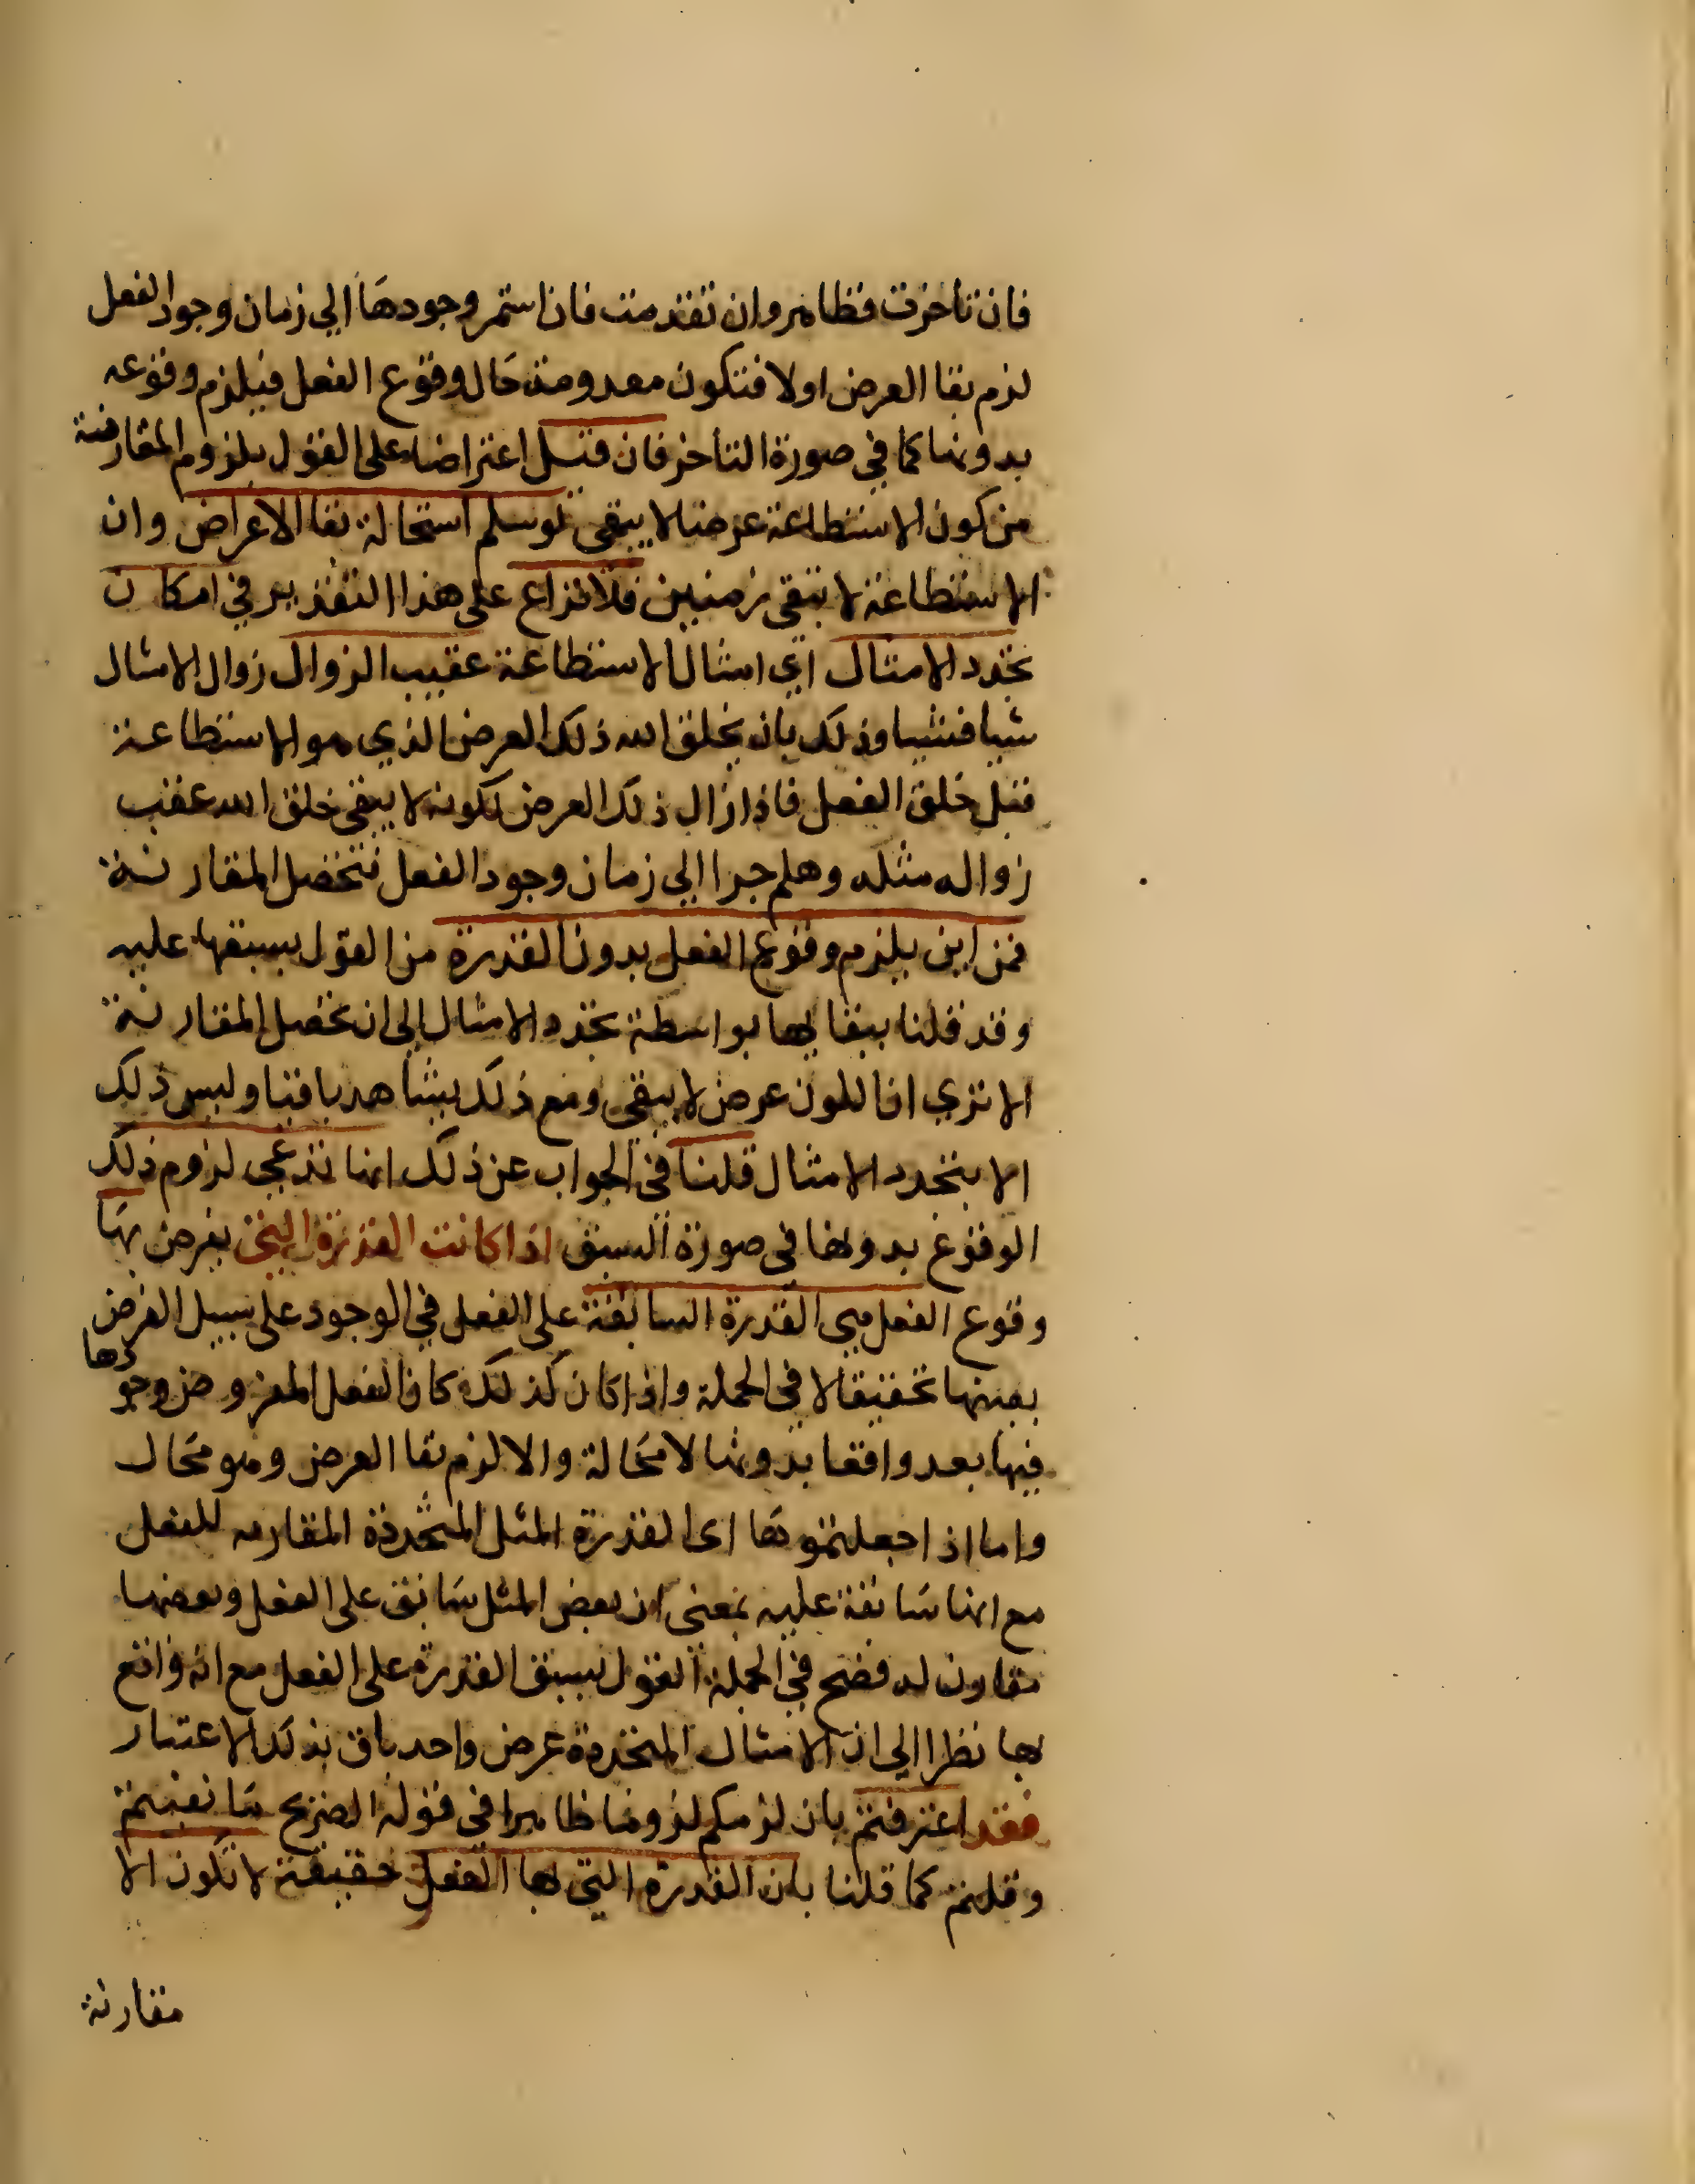 فان تاخرت فظاهر وان تقدمت فان استمر وجودها الي زمان وجود الفعل
لزم بقا العرض اولا فتكون معدومة حال وقوع الفعل فيلزم وقوعه
بدونها كما في صورة التاخر فان قيل اعتراضا على القول بلزوم المقارنة
من كون الاستطاعة عرضا لا يبقى لو سلم استحالة بقا الاعراض وان
الاستطاعة لا تبقى زمنين فلا نزاع على هذا التقدير في امكان
تجدد الامثال اي امثال الاستطاعة عقيب الزوال زوال الامثال
شيا فشيا وذلك بان يخلق الله ذلك العرض الذي هو الاستطاعة
قبل خلق الفعل فاذا زال ذلك العرض لكونه لا يبقى خلق الله عقب
زواله مثله وهلم جرا الي زمان وجود الفعل فتحصل المقارنة
فمن اين يلزم وقوع الفعل بدون القدرة من القول بسبقها عليه
وقد قلنا ببقايها بواسطة تجدد الامثال الى ان تحصل المقارنة
الا تري ان اللون عرض لا يبقى ومع ذلك يشاهد باقيا وليس ذلك
الا بتجدد الامثال قلنا في الجواب عن ذلك انما ندعي لزوم ذلك
الوقوع بدونها في صورة السبق اذا كانت القدرة التي يفرض بها
وقوع الفعل هي القدرة السابقة على الفعل في الوجود على سبيل الفرض
بعينها تحقيقا لا في الجملة واذا كان كذلك كان الفعل المفروض وجودها
فيها بعد واقعا بدونها لا محالة والا لزم بقا العرض وهو محال
واما اذا جعلتموها اى القدرة المثل المتجددة المقارنه للفعل
مع انها سابقة عليه بمعنى ان بعض المثل سابق على الفعل وبعضها
مقارن له فصح في الجملة القول بسبق القدرة على الفعل مع انه واقع
بها نظرا الي ان الامثال المتجددة عرض واحد باق بذلك الاعتبار
فقد اعترفتم بان لزمكم لزوما ظاهرا في قوله الصريح
وقلتم كما قلنا بان القدرة التي بها الفعل حقيقة لا تكون الا
مقارنة